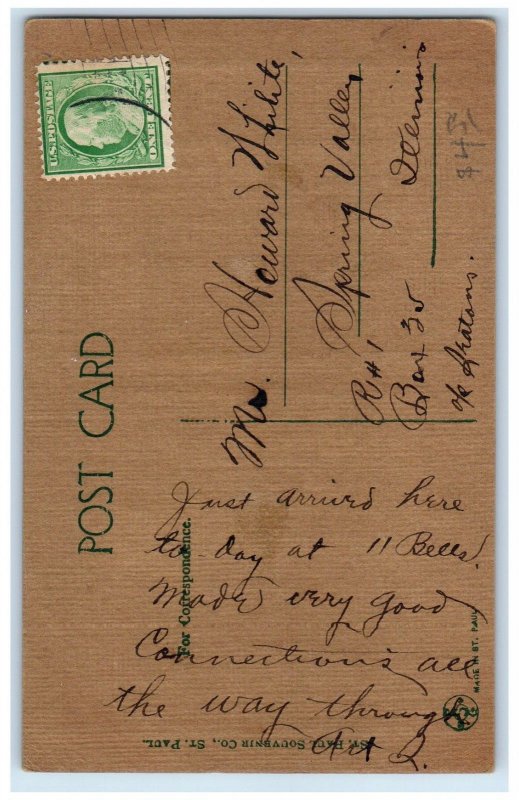 U.S. POSTAGE
ONE CENT
POST CARD
Mr. Howard White,
Spring Valley
Illinois
R#1
Box 30
c/o Seatons.
For Correspondence.
Just arrived here
to-day at 11 Bells.
Made very good
Connections all
the way through
Art Q.
ST. PAUL SOUVENIR CO., ST. PAUL.
MADE IN ST. PAUL